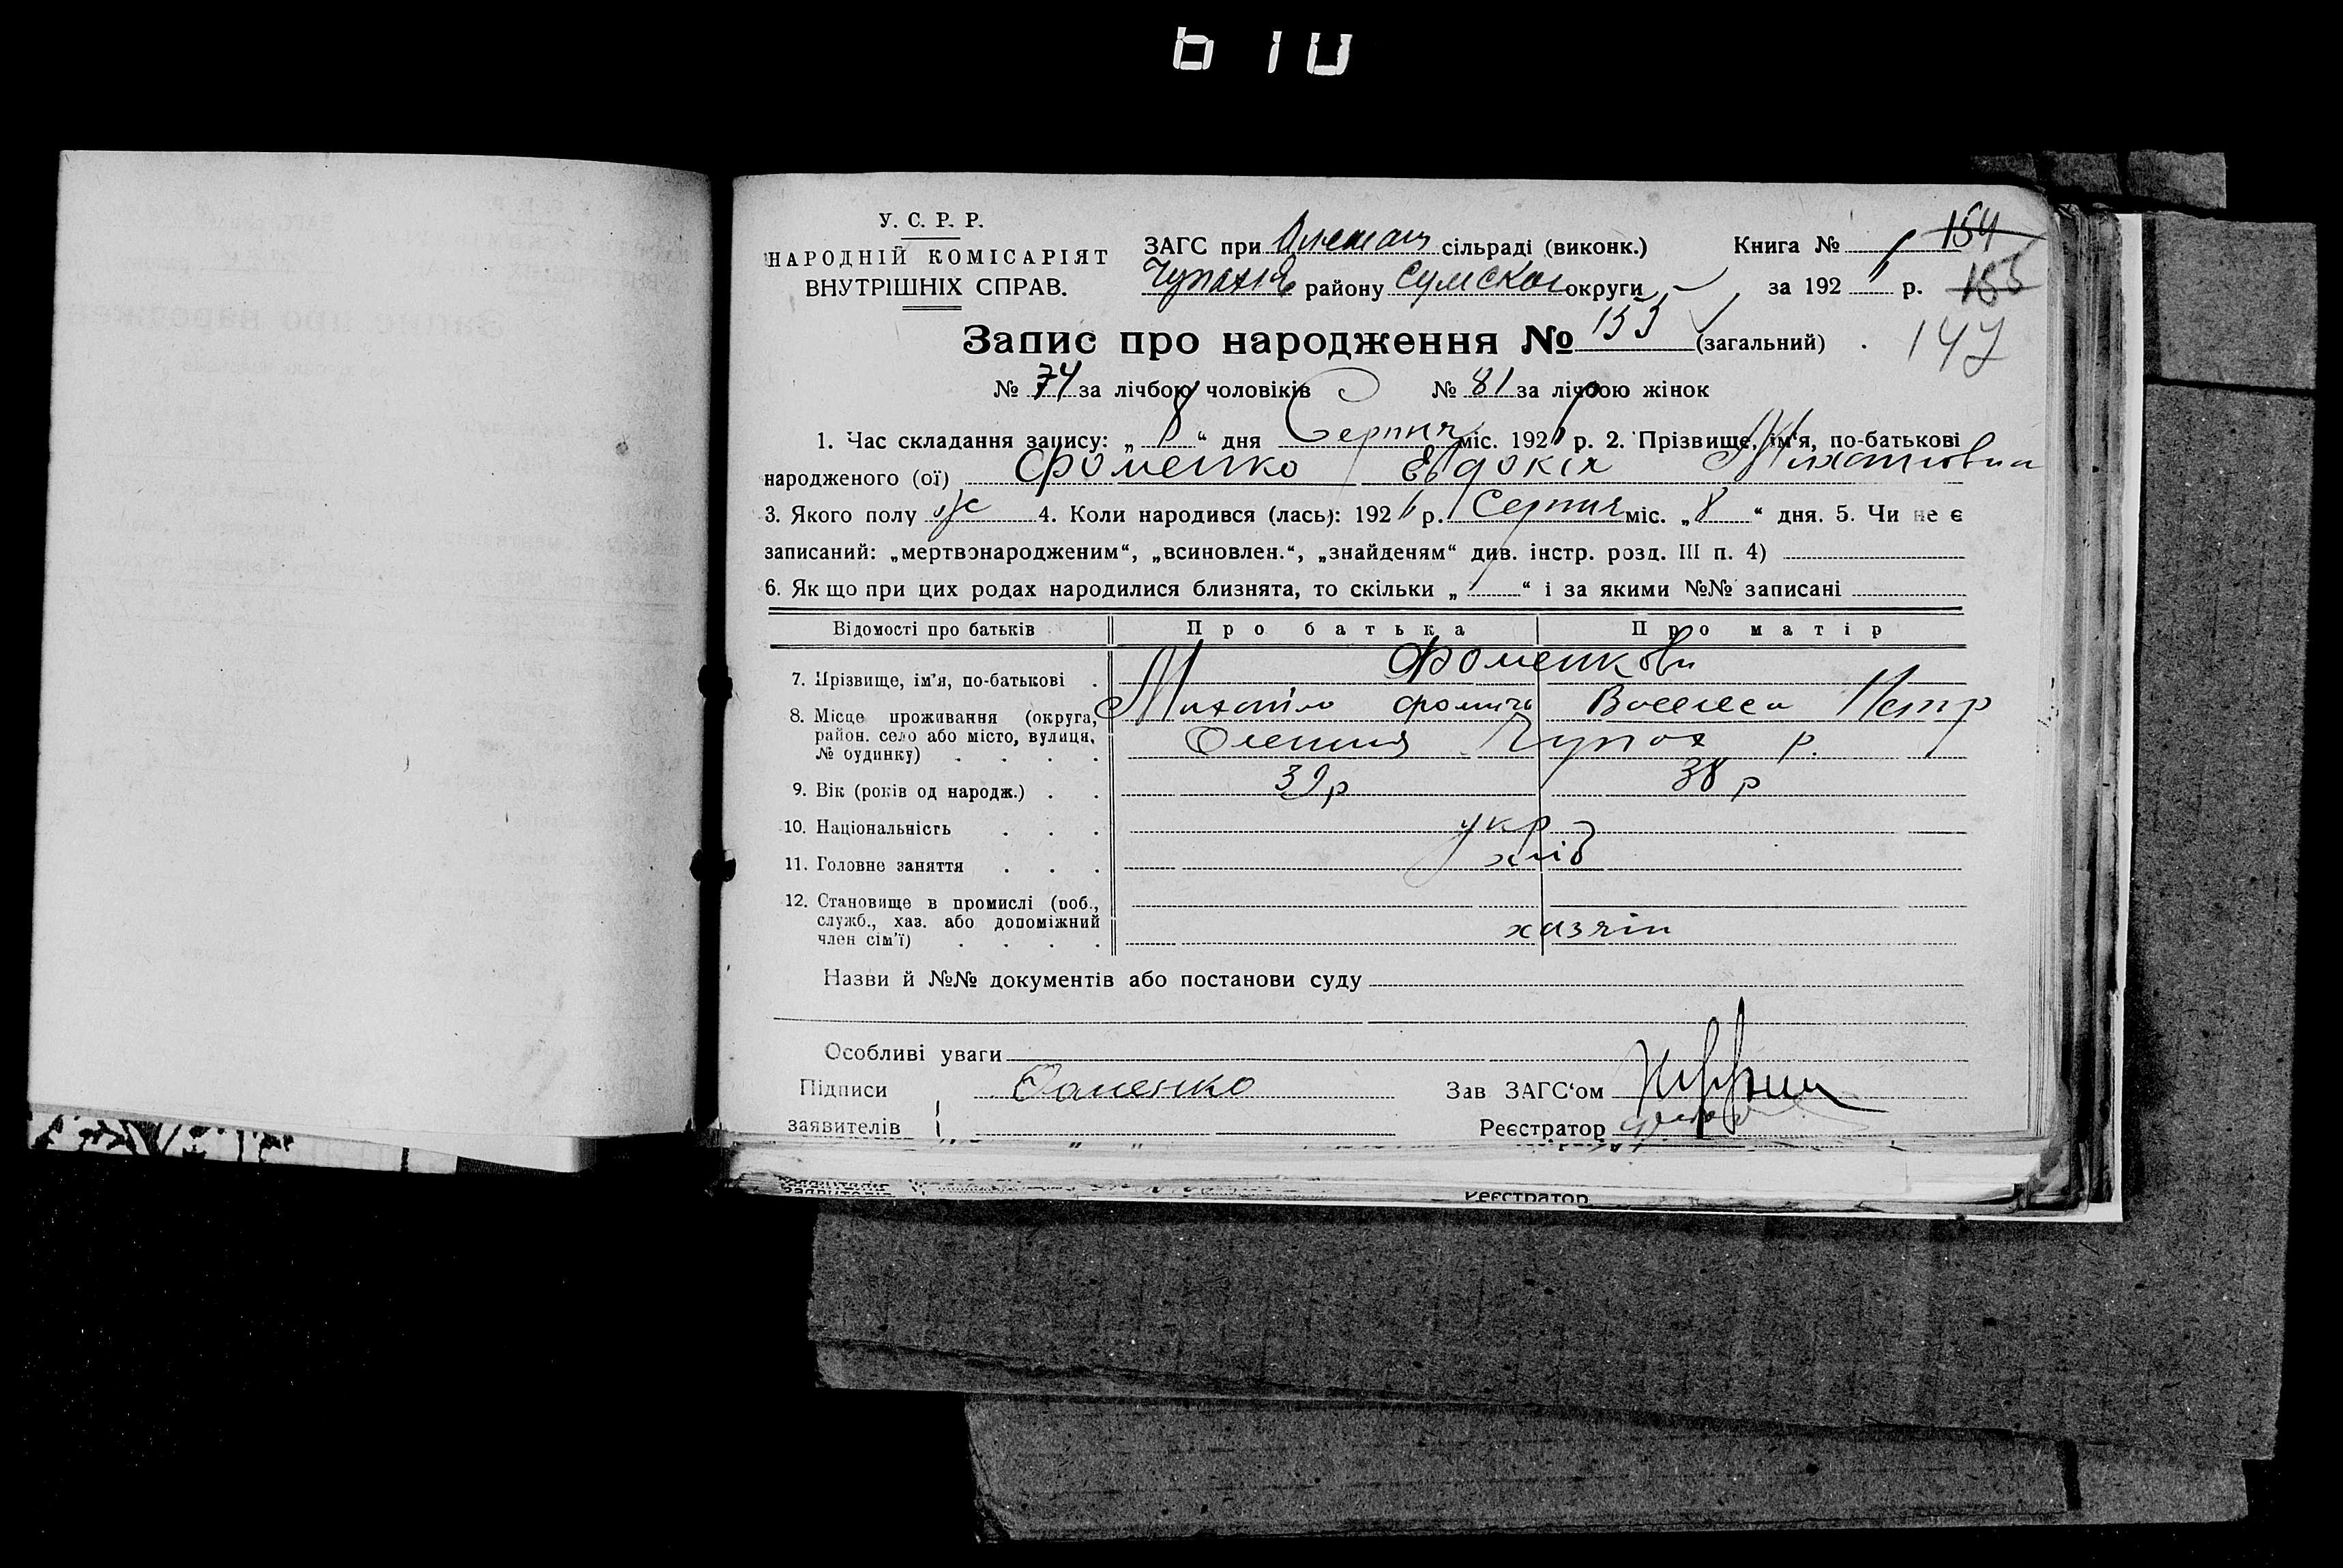 У. С. Р. Р.
НАРОДНІЙ КОМІСАРІЯТ
ВНУТРІШНІХ СПРАВ.
ЗАГС при сільраді (виконк.) Книга № 154
Чупахів району Сумской округи за 192 р. 155
147
Запис про народження № 155 (загальний)
№ 74 за лічбою чоловіків № 81 за лічбою жінок
1. Час складання запису: „ 8 “ дня Серпня міс. 1926 р. 2. Прізвище, ім'я, по-батькові
народженого (ої) Фоменко Евдокія Михайловна
3. Якого полу ж 4. Коли народився (лась): 1926 р. Серпня міс. „ 8 “ дня. 5. Чи не є
записаний: „мертвонародженим“, „всиновлен.“, „знайденям“ див. інстр. розд. III п. 4)
6. Як що при цих родах народилися близнята, то скільки „ “ і за якими №№ записані
Відомості про батьків Про батька Про матір
7. Прізвище, ім'я, по-батькові Фоменкови
Михайло Фомичь Васелеса Петр
8. Місце проживання (округа, район. село або місто, вулиця, № будинку) Олешня Чупах р.
9. Вік (років од народж.) 39 р 38 р
10. Національність укр
11. Головне заняття хліб
12. Становище в промислі (роб., служб., хаз. або допоміжний член сім'ї) хазяін
Назви й №№ документів або постанови суду
Особливі уваги
Підписи Фоменко Зав ЗАГС'ом
заявителів Реєстратор
Реєстратор